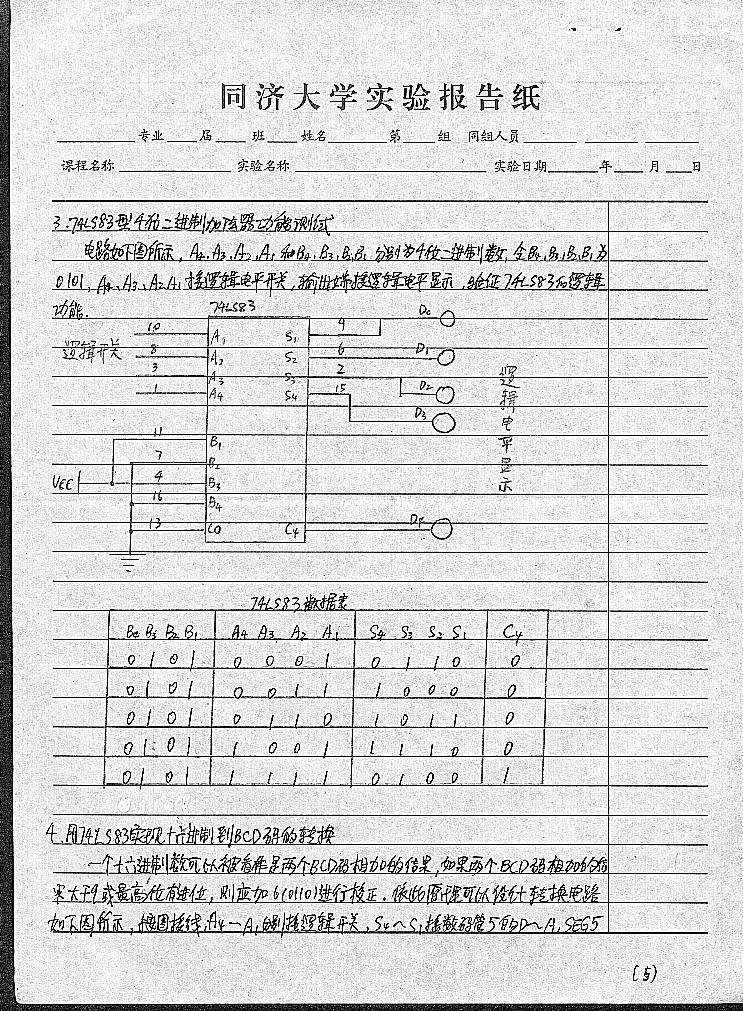 同济大学实验报告纸
专业 届 班 姓名 第 组 同组人员
课程名称 实验名称 实验日期 年 月 日
3.74LS83型4位二进制加法器功能测试
电路如下图所示，A4、A3、A2、A1和B4、B3、B2、B1分别为4位二进制数，令B4、B3、B2、B1为
0101，A4、A3、A2、A1接逻辑电平开关，输出端接逻辑电平显示，验证74LS83的逻辑
功能.
74LS83
逻辑开关
10 A1 S1 9 D0
8 A2 S2 6 D1
3 A3 S3 2 D2
1 A4 S4 15 D3
逻辑电平显示
11 B1
7 B2
VCC 4 B3
16 B4
13 C0 C4 D4
74LS83数据表
B4 B3 B2 B1 A4 A3 A2 A1 S4 S3 S2 S1 C4
0 1 0 1 0 0 0 1 0 1 1 0 0
0 1 0 1 0 0 1 1 1 0 0 0 0
0 1 0 1 0 1 1 0 1 0 1 1 0
0 1 0 1 1 0 0 1 1 1 1 0 0
0 1 0 1 1 1 1 1 0 1 0 0 1
4.用74LS83实现十六进制到BCD码的转换
一个十六进制数可以被看作是两个BCD码相加的结果，如果两个BCD码相加的结
果大于9或最高位有进位，则应加6(0110)进行校正.依此原理可以设计转换电路
如下图所示，按图接线，A4～A1分别接逻辑开关，S4～S1接数码管5的D～A，SEG5
(5)